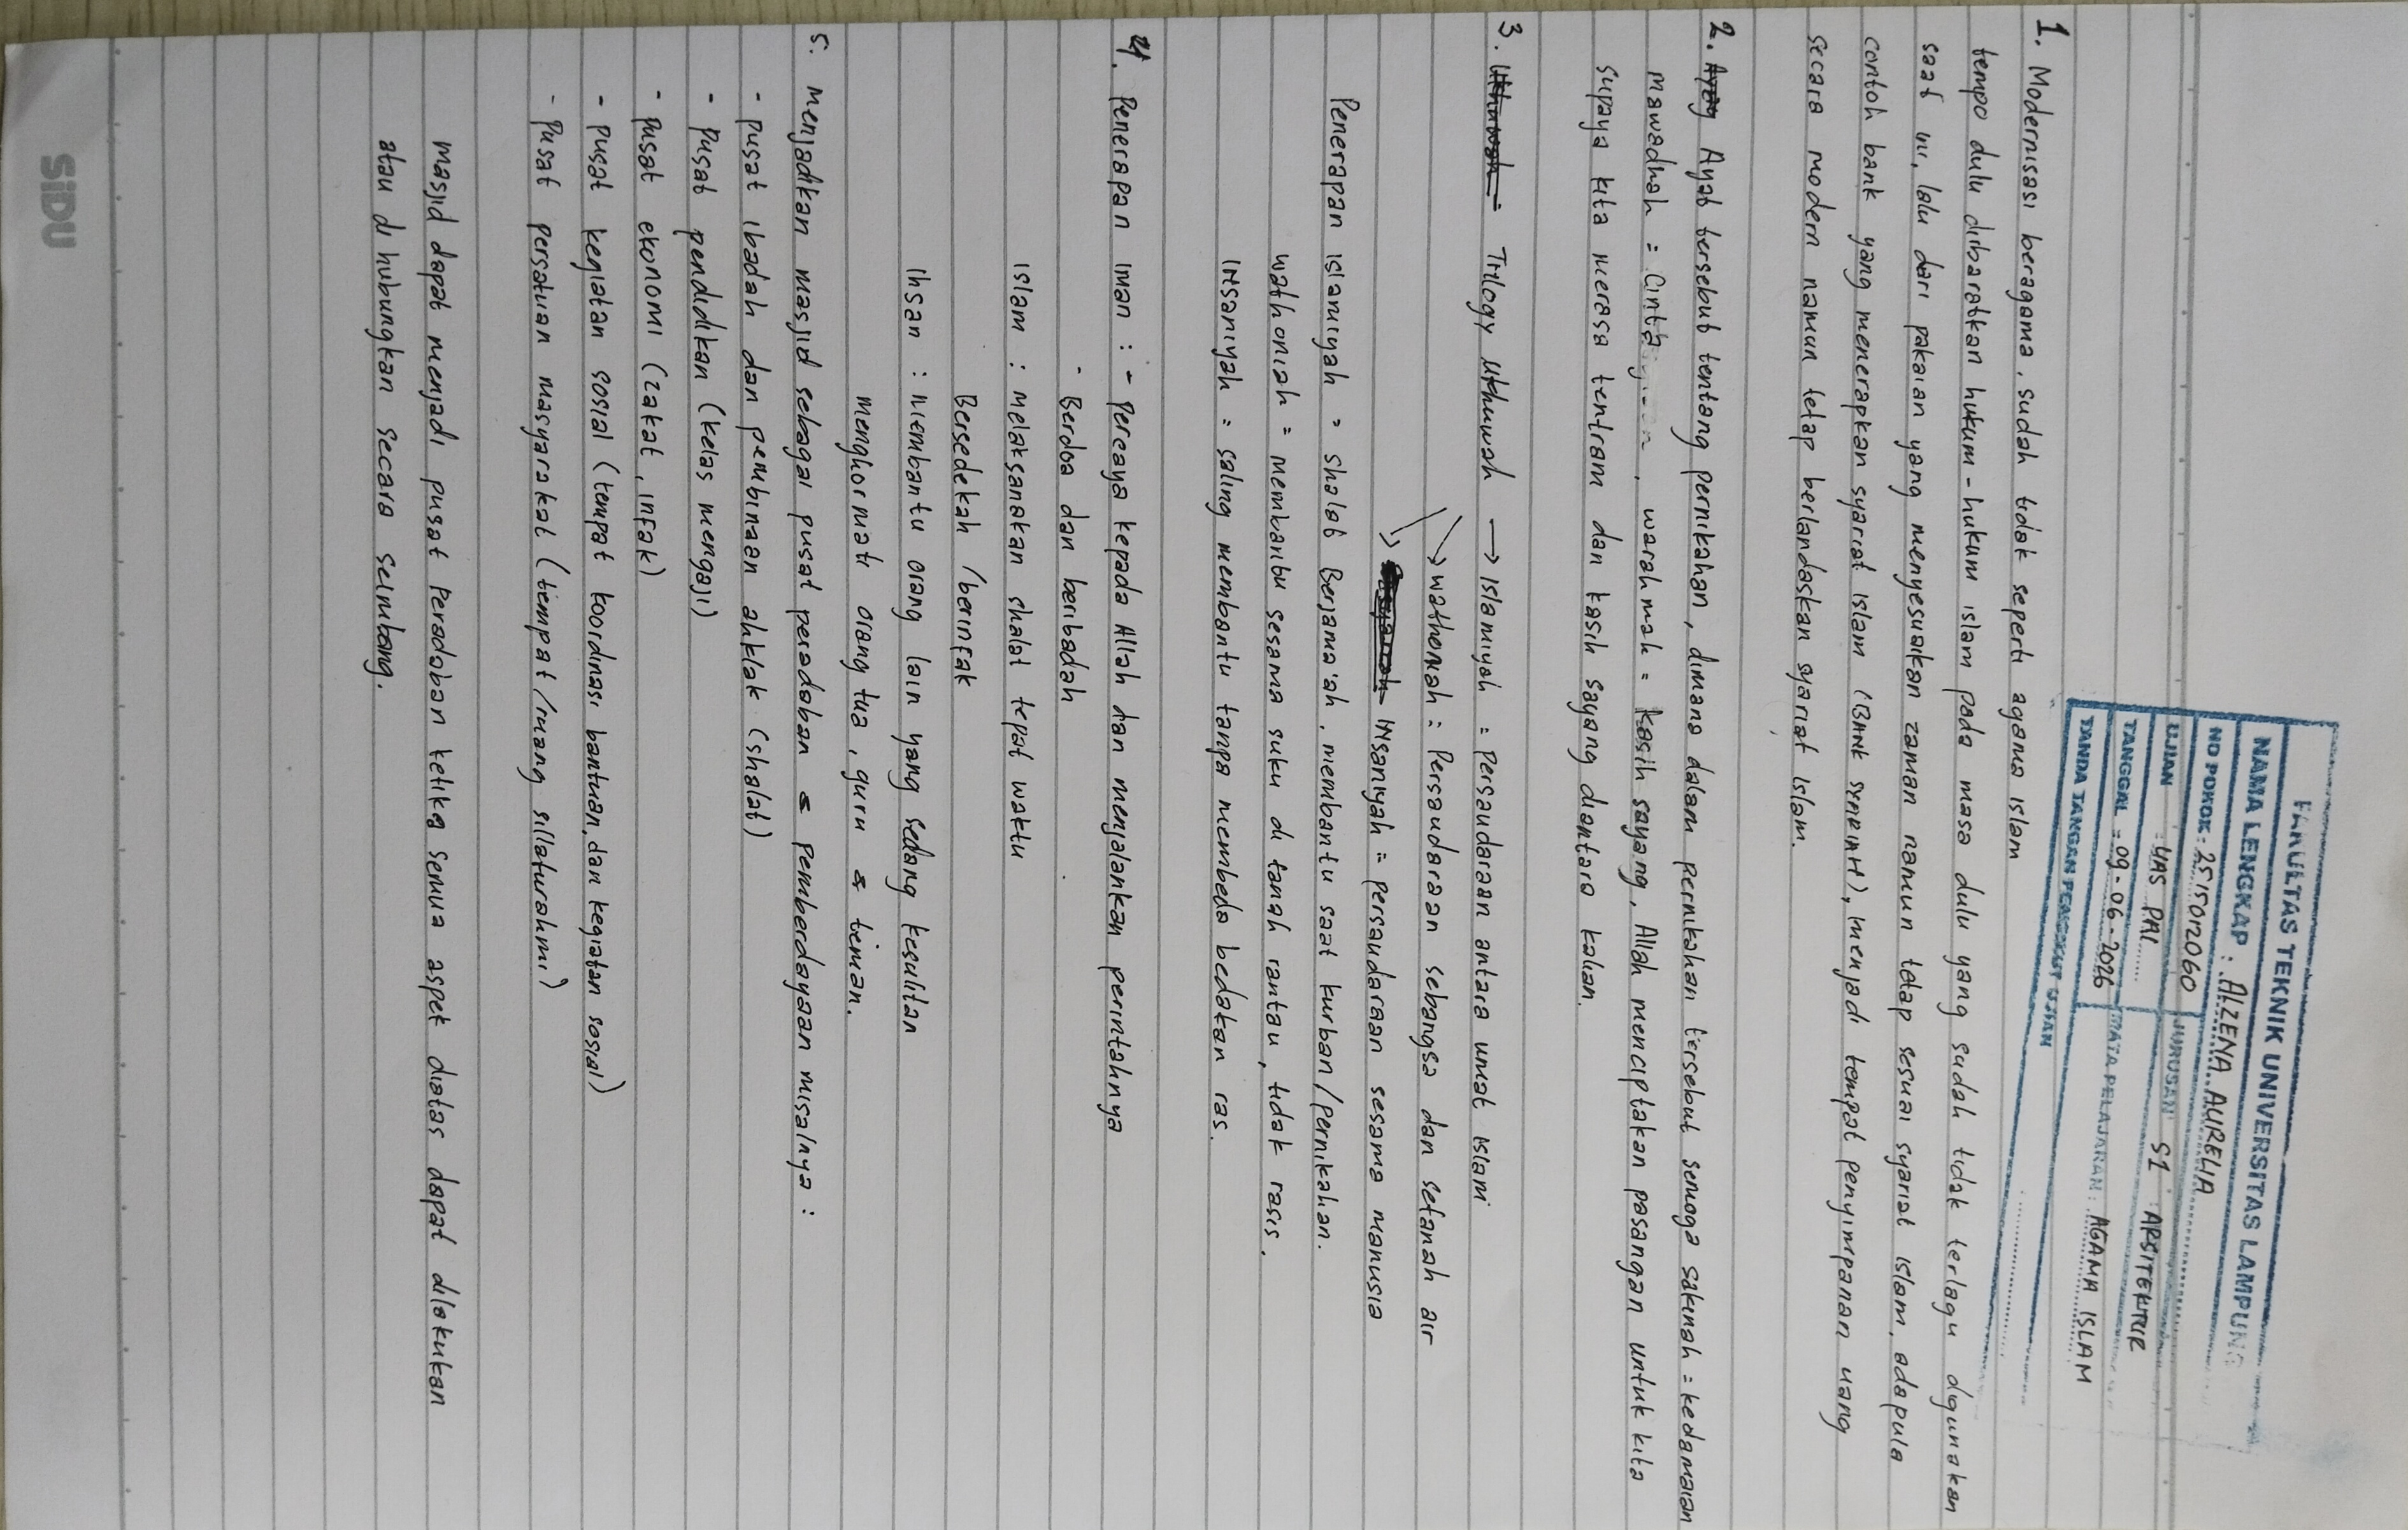 FAKULTAS TEKNIK UNIVERSITAS LAMPUNG
NAMA LENGKAP : ALZENA AURELIA
NO POKOK : 2515012060 JURUSAN S1 ARSITEKTUR
UJIAN : UAS PAI MATA PELAJARAN : AGAMA ISLAM
TANGGAL : 09-06-2026
TANDA TANGAN PENGIKUT UJIAN
1. Modernisasi beragama, sudah tidak seperti agama islam
tempo dulu diibaratkan hukum-hukum islam pada masa dulu yang sudah tidak terlagu digunakan
saat ini, lalu dari pakaian yang menyesuaikan zaman namun tetap sesuai syariat islam, adapula
contoh bank yang menerapkan syariat islam (BANK SYARIAH), menjadi tempat penyimpanan uang
secara modern namun tetap berlandaskan syariat islam.
2. Ayat tersebut tentang pernikahan, dimana dalam pernikahan tersebut semoga sakinah = kedamaian
mawadhah = Cinta, warahmah = kasih sayang, Allah menciptakan pasangan untuk kita
supaya kita merasa tentram dan kasih sayang diantara kalian.
3. Ukhuwah = Trilogy Ukhuwah → Islamiyah = Persaudaraan antara umat islam
→ wathoniah : Persaudaraan sebangsa dan setanah air
→ INsaniyah = persaudaraan sesama manusia
Penerapan islamiyah = shalat Berjama'ah, membantu saat kurban/pernikahan.
wathoniah = membantu sesama suku di tanah rantau, tidak rasis.
INsaniyah = saling membantu tanpa membeda bedakan ras.
4. Penerapan iman : - Percaya kepada Allah dan menjalankan perintahnya
- Berdoa dan beribadah
islam : melaksanakan shalat tepat waktu
Bersedekah /berinfak
Ihsan : membantu orang lain yang sedang kesulitan
menghormati orang tua, guru & teman.
5. menjadikan masjid sebagai pusat peradaban & pemberdayaan misalnya :
- pusat ibadah dan pembinaan ahklak (shalat)
- pusat pendidikan (kelas mengaji)
- pusat ekonomi (zakat, infak)
- pusat kegiatan sosial (tempat koordinasi bantuan, dan kegiatan sosial)
- Pusat persatuan masyarakat (tempat/ruang sillaturahmi)
masjid dapat menjadi pusat Peradaban ketika semua aspek diatas dapat dilakukan
atau di hubungkan secara seimbang.
SiDU